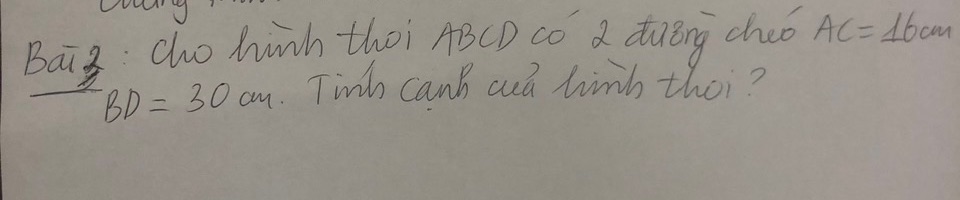 Bài 2: Cho hình thoi ABCD có 2 đường chéo AC = 16cm
BD = 30 cm. Tính cạnh của hình thoi?